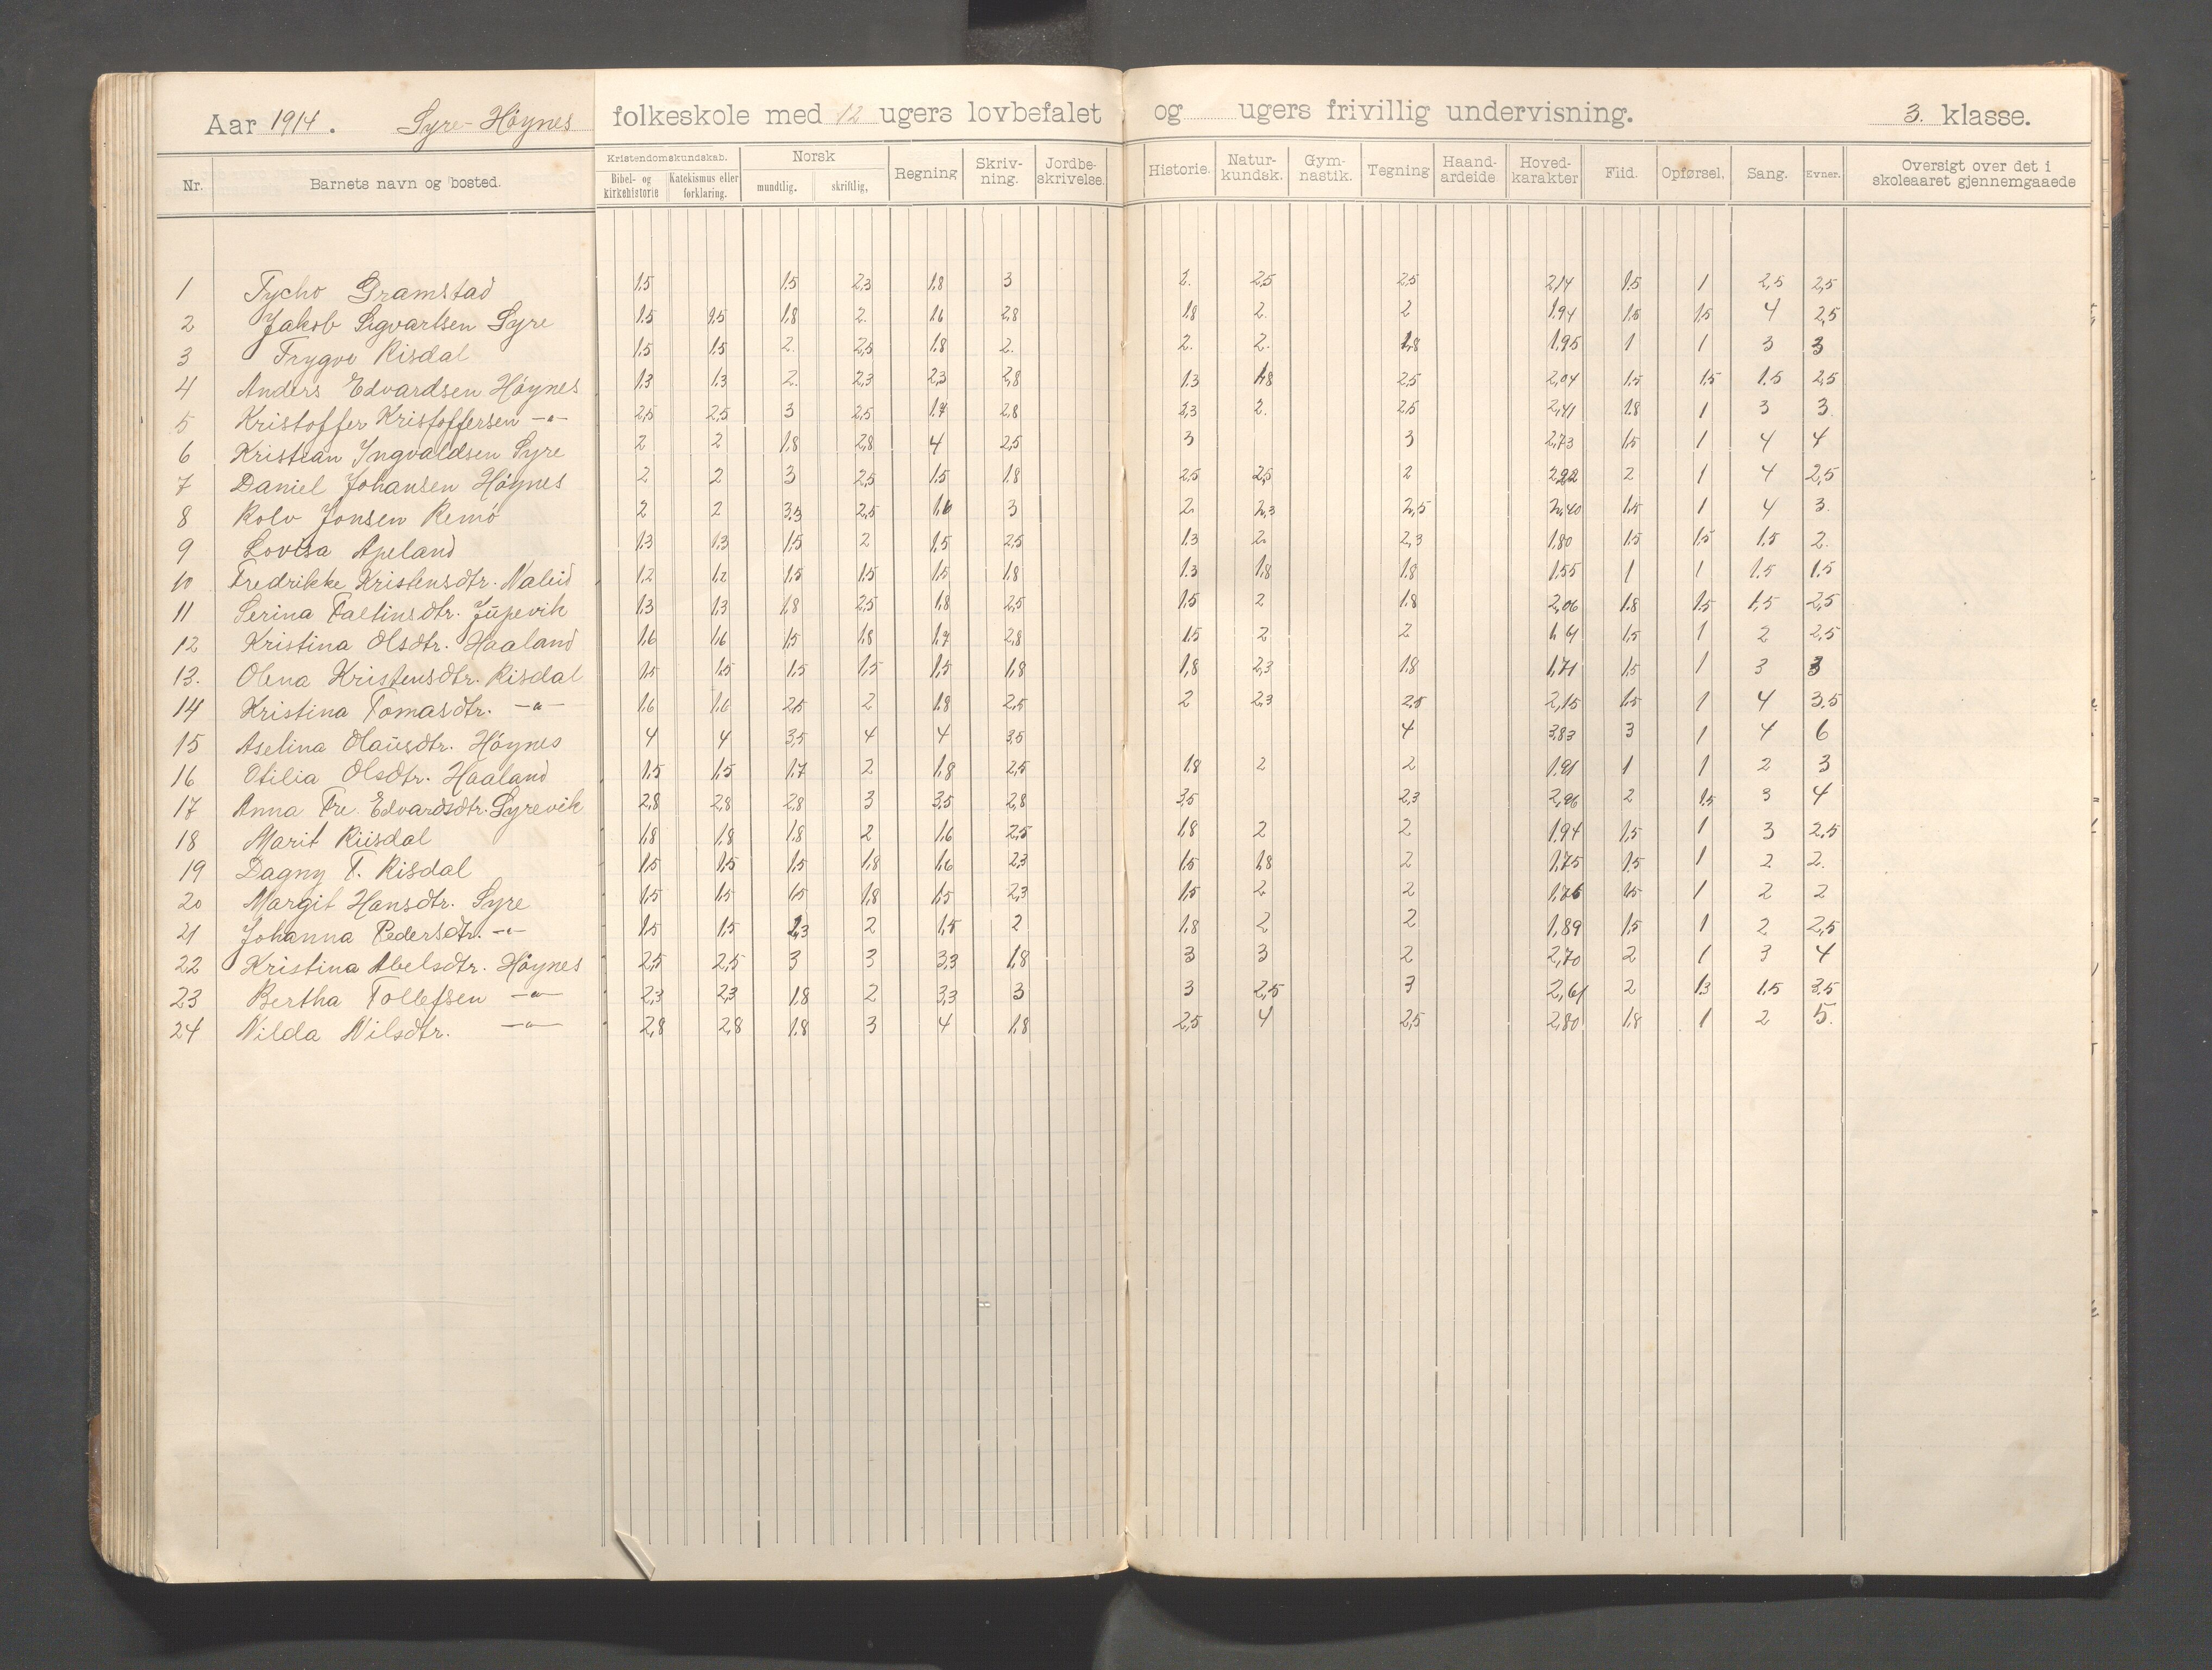 Aar 1914. Syre-Höynes folkeskole med 12 ugers lovbefalet og ugers frivillig undervisning. 3. klasse.
Nr. Barnets navn og bosted. Kristendomskundskab. Bibel- og kirkehistorie Katekismus eller forklaring. Norsk mundtlig. skriftlig, Regning Skriv-ning. Jordbe-skrivelse. Historie. Natur-kundsk. Gym-nastik. Tegning Haand-ardeide Hoved-karakter Flid. Opførsel, Sang. Evner. Oversigt over det i skoleaaret gjennemgaaede
1 Tycho Gramstad 1.5 1.5 2,3 1,8 3 2. 2,5 2,5 2,14 1.5 1 2,5 2,5
2 Jakob Sigvartsen Syre 1.5 1.5 1,8 2. 1,6 2,8 1,8 2. 2 1.94 1,5 1,5 4 2,5
3 Trygve Risdal 1.5 1.5 2. 2,5 1.8 2. 2. 2. 1,8 1.95 1 1 3 3
4 Anders Edvardsen Höynes 1.3 1.3 2. 2,3 2,3 2,8 1.3 1,8 2,5 2,04 1.5 1.5 1.5 2,5
5 Kristoffer Kristoffersen -"- 2,5 2,5 3 2,5 1.7 2,8 3,3 2. 2,5 2,41 1.8 1 3 3.
6 Kristian Yngvaldsen Syre 2 2 1,8 2,8 4 2,5 3 3 2,73 1.5 1 4 4
7 Daniel Johansen Höynes 2 2 3 2,5 1.5 1.8 2,5 2,5 2 2,22 2 1 4 2,5
8 Rolv Jonsen Remö 2 2 3,3 2,5 1,6 3 2. 2,3 2,5 2,40 1.5 1 4 3.
9 Lovisa Apeland 1.3 1.3 1.5 2 1,5 2,5 1.3 2. 2,3 1,80 1.5 1.5 1.5 2.
10 Fredrikke Kristensdtr. Naleid 1.2 1.2 1.5 1.5 1.5 1.8 1.3 1,8 1.8 1.55 1 1 1.5 1.5
11 Serina Faltinsdtr. Jupevik 1.3 1.3 1,8 2,5 1,8 2,5 1.5 2 1.8 2,06 1.8 1.5 1,5 2,5
12 Kristina Olsdtr. Haaland 1.6 1.6 1.5 1.8 1.7 2,8 1.5 2 2 1,5 1 2 2,5
13. Olena Kristensdtr. Risdal 1.5 1.5 1.5 1.5 1.5 1.8 1,8 2,3 1.8 1.71 1.5 1 3 3
14 Kristina Tomasdtr. -"- 1.6 1.6 2,5 2 1.8 2,5 2 2,3 2,5 2,15 1.5 1 4 3.5
15 Aselina Olausdtr. Höynes 4 4 3,5 4 4 3,5 4 3,83 3 1 4 6
16 Otilia Olsdtr. Haaland 1.5 1.5 1.7 2 1.8 2,5 1.8 2 2 1.91 1 1 2 3
17 Anna Fre. Edvardsdtr. Syrevik 2,8 2,8 2,8 3 3,5 2,8 3,5 2,3 2,96 2 1.5 3 4
18 Marit Riisdal 1,8 1,8 1.8 2 1.6 2,5 1,8 2 2 1.94 1,5 1 3 2,5
19 Dagny T. Risdal 1.5 1.5 1.5 1.8 1.6 2,3 1.5 1.8 2 1,75 1.5 1 2 2.
20 Margit Hansdtr. Syre 1.5 1.5 1.5 1.8 1,5 2,3 1,5 2 2 1,76 1.5 1 2 2
21 Johanna Pedersdtr. -"- 1.5 1.5 2,3 2 1,5 2 1.8 2 2 1,89 1.5 1 2 2,5
22 Kristina Abelsdtr. Höynes 2,5 2,5 3 3 3,3 1,8 3 3 2 2,70 2 1 3 4
23 Bertha Tollefsen -"- 2,3 2,3 1.8 2 3,3 3 3 2,5 3 2,61 2 1.3 1.5 3.5
24 Nilda Nilsdtr. -"- 2,8 2,8 1.8 3 4 1,8 2,5 4 2,5 2,80 1.8 1 2 5.